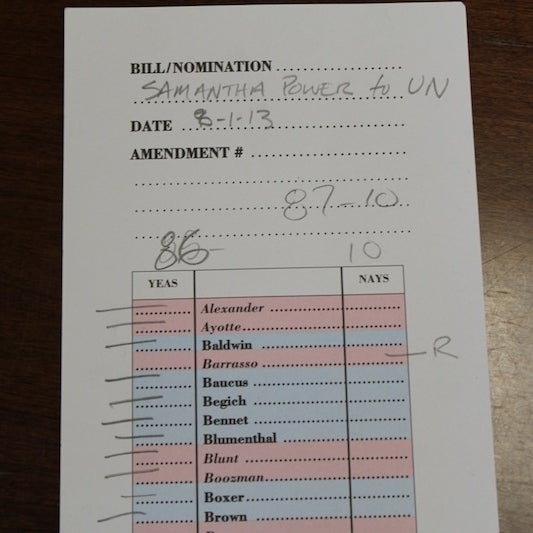 BILL/NOMINATION
SAMANTHA POWER to UN
DATE 8-1-13
AMENDMENT #
87-10
86- 10
YEAS NAYS
Alexander
Ayotte
Baldwin
Barrasso - R
Baucus
Begich
Bennet
Blumenthal
Blunt
Boozman
Boxer
Brown